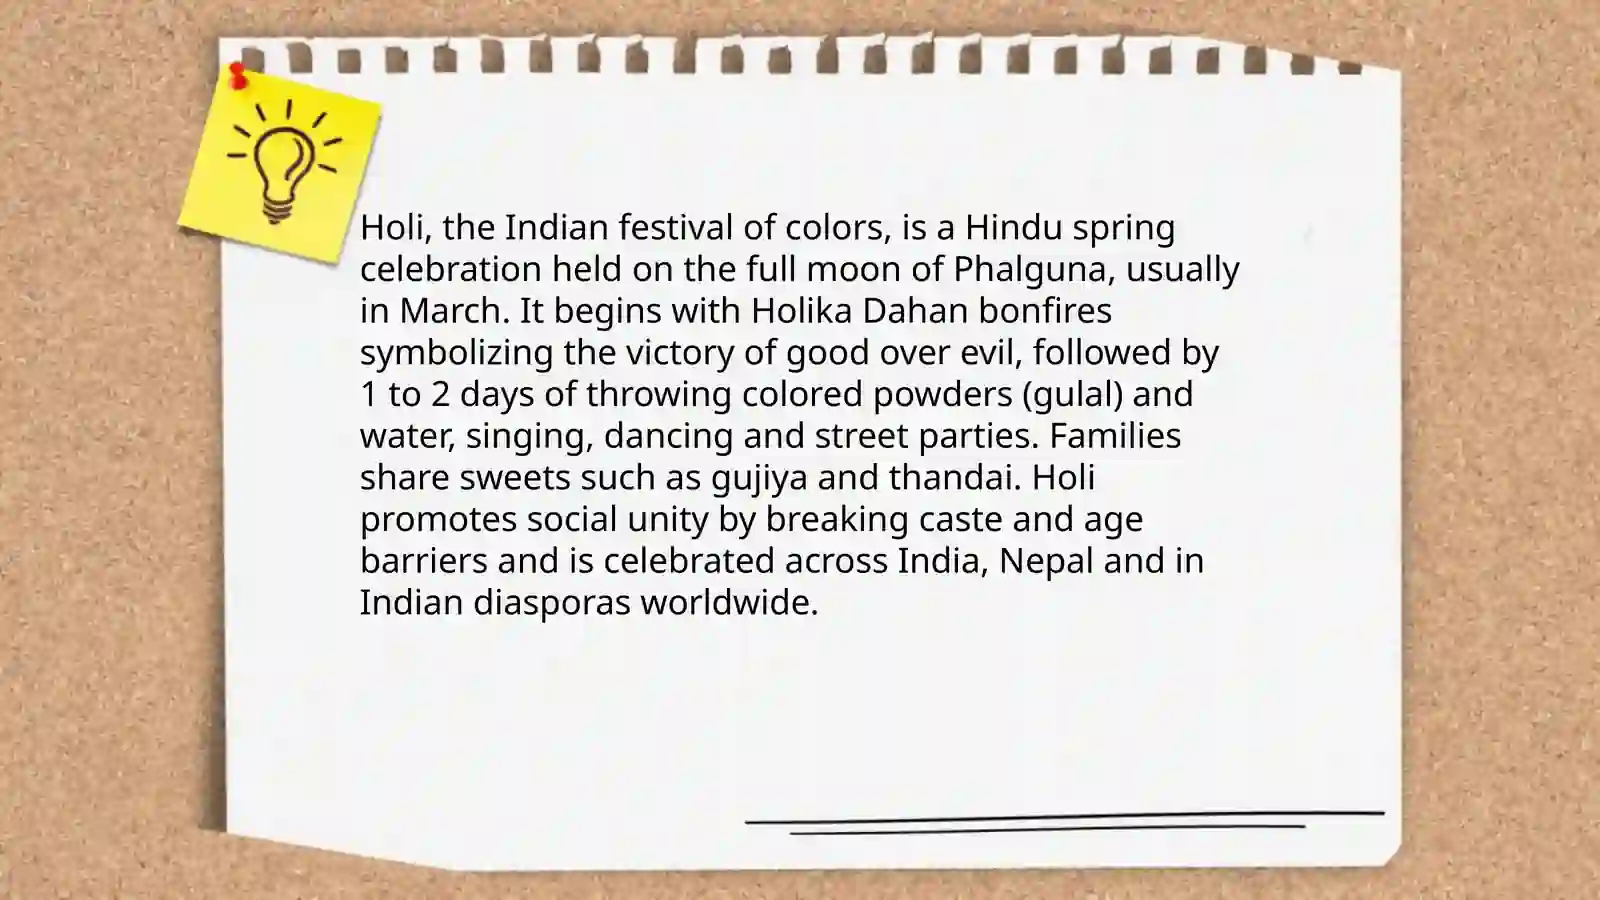 Holi, the Indian festival of colors, is a Hindu spring
celebration held on the full moon of Phalguna, usually
in March. It begins with Holika Dahan bonfires
symbolizing the victory of good over evil, followed by
1 to 2 days of throwing colored powders (gulal) and
water, singing, dancing and street parties. Families
share sweets such as gujiya and thandai. Holi
promotes social unity by breaking caste and age
barriers and is celebrated across India, Nepal and in
Indian diasporas worldwide.